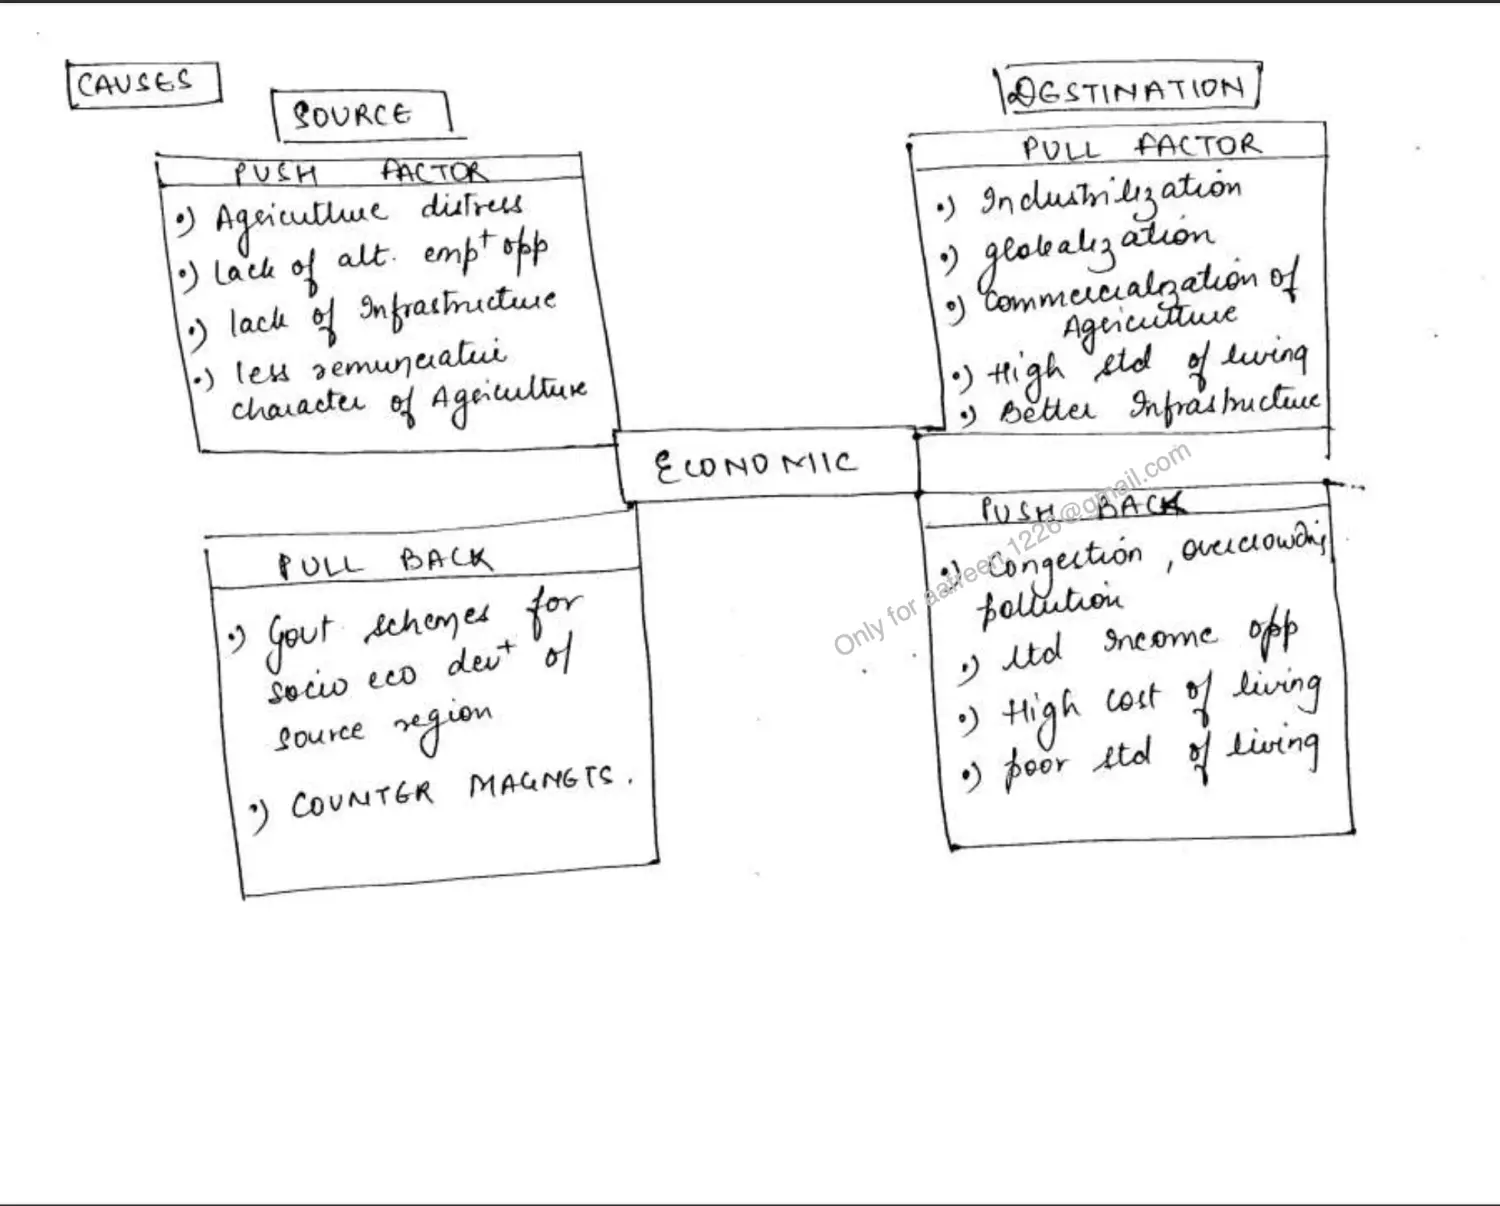 CAUSES
SOURCE
PUSH FACTOR
•) Agriculture distress
•) lack of alt. emp+ opp
•) lack of Infrastructure
•) less remunerative
character of Agriculture
DESTINATION
PULL FACTOR
•) Industrilization
•) globalization
•) Commercialization of
Agriculture
•) High std of living
•) Better Infrastructure
ECONOMIC
PULL BACK
•) Govt schemes for
socio eco dev+ of
source region
•) COUNTER MAGNETS.
PUSH BACK
•) Congestion, overcrowding
pollution
•) ltd Income opp
•) High cost of living
•) poor std of living
Only for aafreen.1226@gmail.com